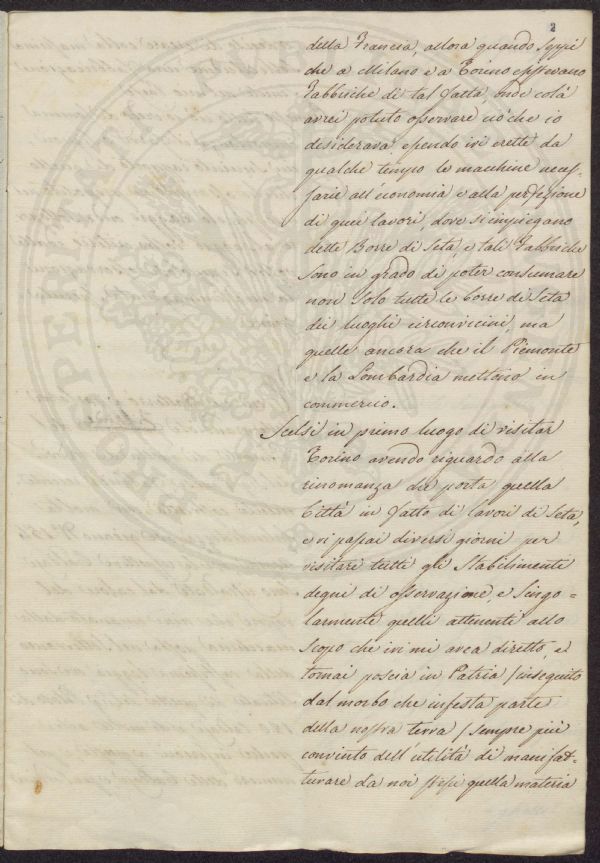 2
della Francia, allora quando seppi
che a Milano e a Torino esistevano
Fabbriche di tal fatta, onde colà
avrei potuto osservare ciò che io
desiderava, essendo ivi erette da
qualche tempo le macchine neces-
sarie all'economia e alla perfezione
di quei lavori, dove si impiegano
dette Borre di Seta, e tali Fabbriche
sono in grado di poter consumare
non solo tutte le borre di Seta
dei luoghi circonvicini, ma
quelle ancora che il Piemonte
e la Lombardia mettono in
commercio.
Scelsi in primo luogo di visitar
Torino avendo riguardo alla
rinomanza che porta quella
Città in fatto di lavori di Seta,
e vi passai diversi giorni per
visitare tutti gli Stabilimenti
degni di osservazione, e Singo=
larmente quelli attenenti allo
scopo che ivi mi avea diretto, e
tornai poscia in Patria /inseguito
dal morbo che infesta parte
della nostra terra/ sempre più
convinto dell'utilità di manifat-
turare da noi stessi quella materia